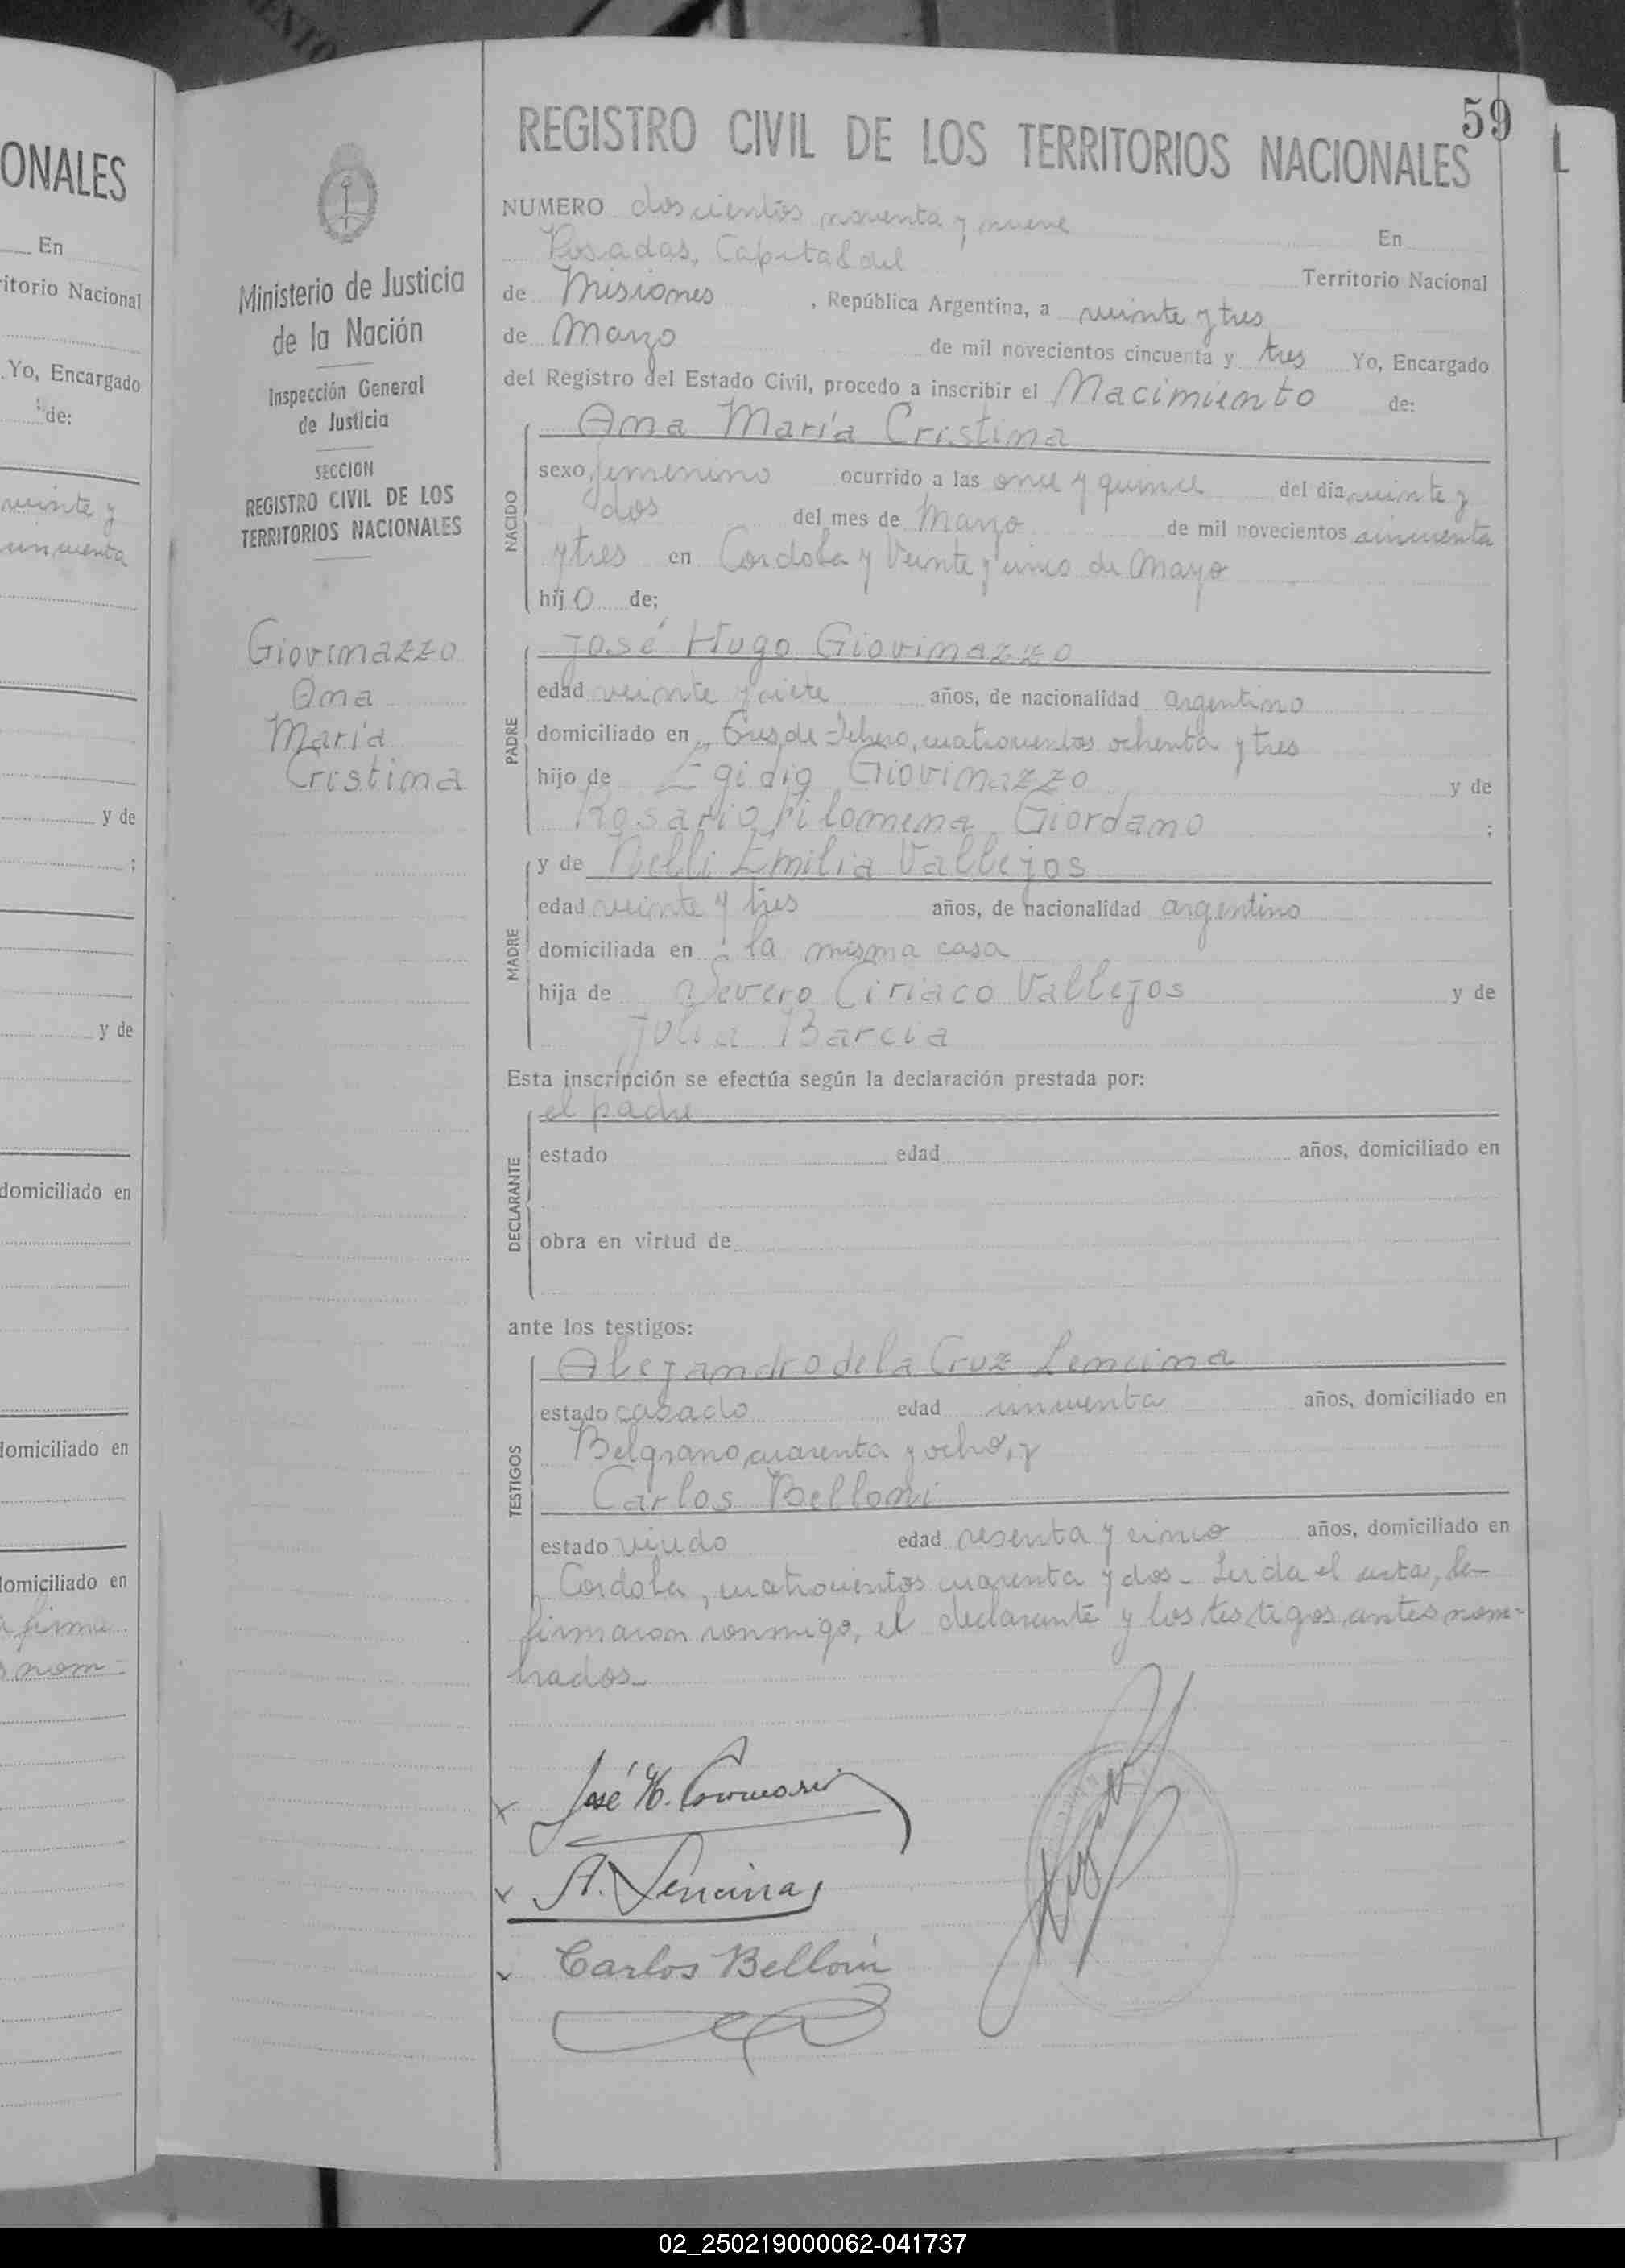 ONALES
En
itorio Nacional
Yo, Encargado
de:
veinte y
cincuenta
y de
;
y de
domiciliado en
domiciliado en
domiciliado en
firma
nom-
Ministerio de Justicia
de la Nación
Inspección General
de Justicia
SECCION
REGISTRO CIVIL DE LOS
TERRITORIOS NACIONALES
Giovinazzo
Ana
María
Cristina
59
REGISTRO CIVIL DE LOS TERRITORIOS NACIONALES
NUMERO doscientos noventa y nueve En
Posadas, Capital del Territorio Nacional
de Misiones, República Argentina, a veinte y tres
de Marzo de mil novecientos cincuenta y tres Yo, Encargado
del Registro del Estado Civil, procedo a inscribir el Nacimiento de:
NACIDO
Ana María Cristina
sexo femenino ocurrido a las once y quince del día veinte y
dos del mes de Marzo de mil novecientos cincuenta
y tres en Cordoba y Veinte y cinco de Mayo
hij o de;
PADRE
José Hugo Giovinazzo
edad veinte y siete años, de nacionalidad argentino
domiciliado en Tres de Febrero, cuatrocientos ochenta y tres
hijo de Egidio Giovinazzo y de
Rosario Filomena Giordano ;
MADRE
y de Nelli Emilia Vallejos
edad veinte y tres años, de nacionalidad argentino
domiciliada en la misma casa
hija de Severo Ciriaco Vallejos y de
Julia Barcia
Esta inscripción se efectúa según la declaración prestada por:
DECLARANTE
el padre
estado edad años, domiciliado en
obra en virtud de
ante los testigos:
TESTIGOS
Alejandro de la Cruz Lencina
estado casado edad cincuenta años, domiciliado en
Belgrano, cuarenta y ocho, y
Carlos Belloni
estado viudo edad sesenta y cinco años, domiciliado en
Cordoba, cuatrocientos cuarenta y dos - Leida el acta, la
firmaron conmigo, el declarante y los testigos antes nom-
brados-
José H. Giovinazzo
A. Lencinas
Carlos Belloni
02_250219000062-041737